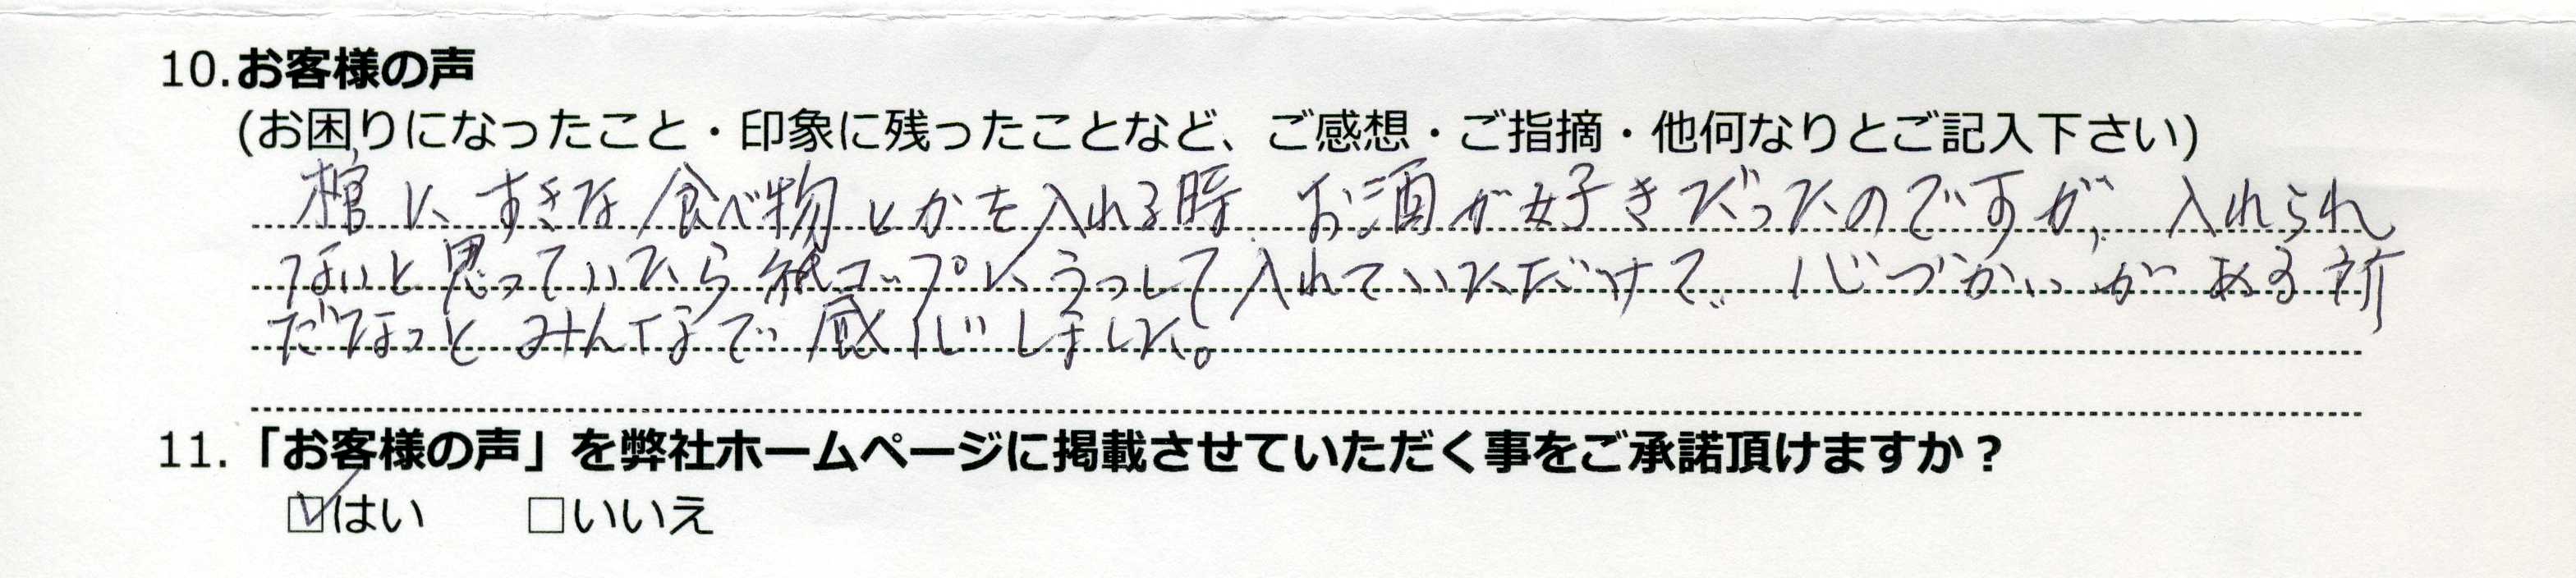 10.お客様の声
(お困りになったこと・印象に残ったことなど、ご感想・ご指摘・他何なりとご記入下さい)
棺に、すきな食べ物とかを入れる時、お酒が好きだったのですが、入れられ
ないと思っていたら紙コップに、うつして入れていただけて、心づかいがある所
だなっとみんなで感じしました。
11.「お客様の声」を弊社ホームページに掲載させていただく事をご承諾頂けますか？
☑はい　□いいえ